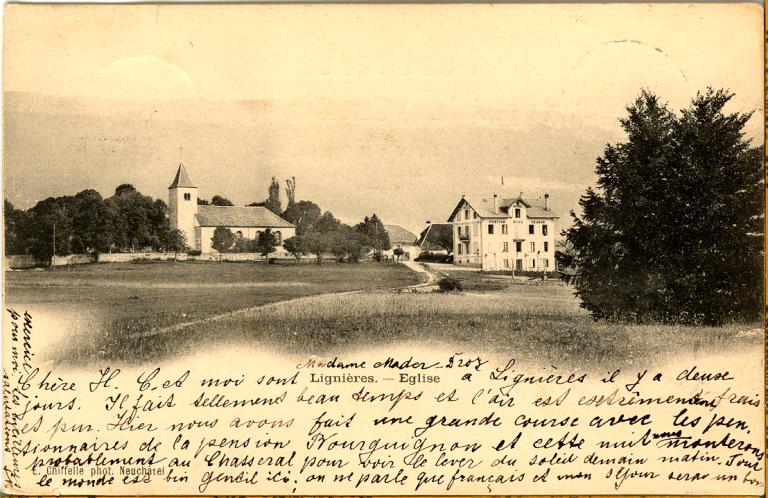 PENSION BEAU SEJOUR
Madame Mader-Droz
Lignières. — Eglise
Chère H. C. et moi sont à Lignières il y a deuse
jours. Il fait tellement beau temps et l'air est extrêmement frais
et pur. Hier nous avons fait une grande course avec les pen
sionnaires de la pension Nourquignon et cette nuit nous monterons
probablement au Chasseral pour voir le lever du soleil demain matin. Tout
E. Chiffelle phot. Neuchâtel
le monde est bien gentil ici; on ne parle que français et mon séjour sera un bon
exercice
pour moi